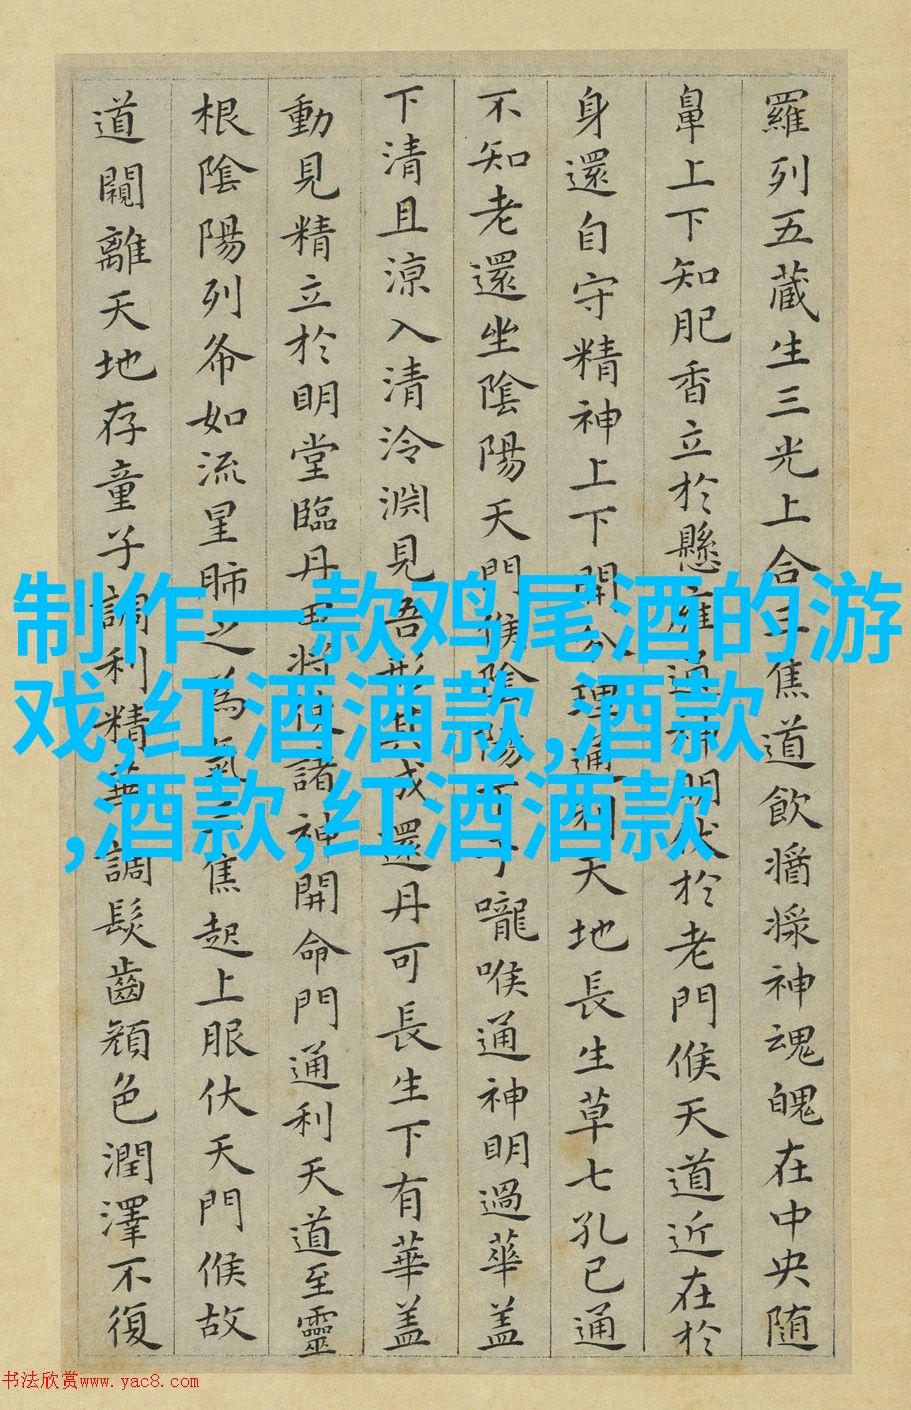 羅列五藏生三光上合三焦道飲醬漿神魂魄在中央随
鼻上下知肥香立於懸雍通神明伏於老門候天道近在於
身還自守精神上下開分理通利天地長生草七孔已通
不知老還坐陰陽天門候陰陽下于嚨喉通神明過華盖
下清且涼入清泠淵見吾形其成還丹可長生下有華盖
動見精立於明堂臨丹田将使諸神開命門通利天道至靈
根陰陽列布如流星肺之為氣三焦起上服伏天門候故
道闚離天地存童子調利精華調髮齒顔色潤澤不復
制作一款鸡尾酒的游
戏,红酒酒款,酒款
,酒款,红酒酒款
书法欣赏www.yac8.com